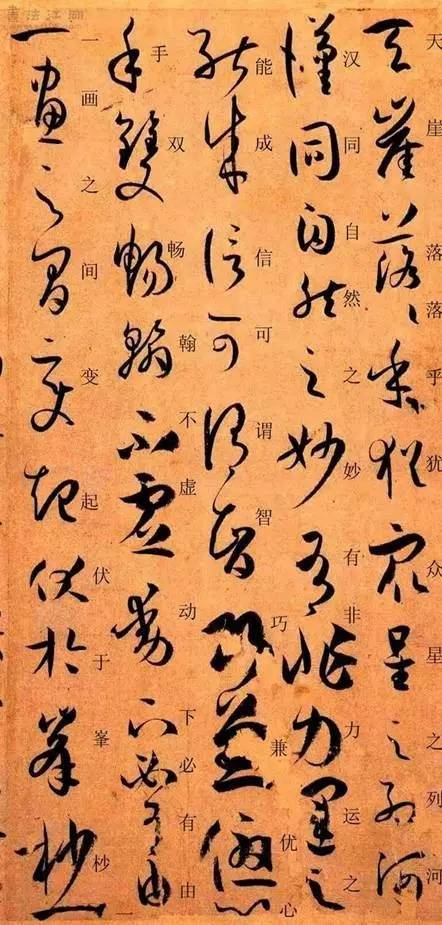 書法江湖
天崖落〻乎猶衆星之列河
天崖落落乎犹众星之列河
漢同自然之妙有非力運之
汉同自然之妙有非力运之
能成信可謂智巧兼優心
能成信可谓智巧兼优心
手雙暢翰不虛動下必有由
手双畅翰不虚动下必有由
一畫之間變起伏於峯杪一
一画之间变起伏于峯杪一